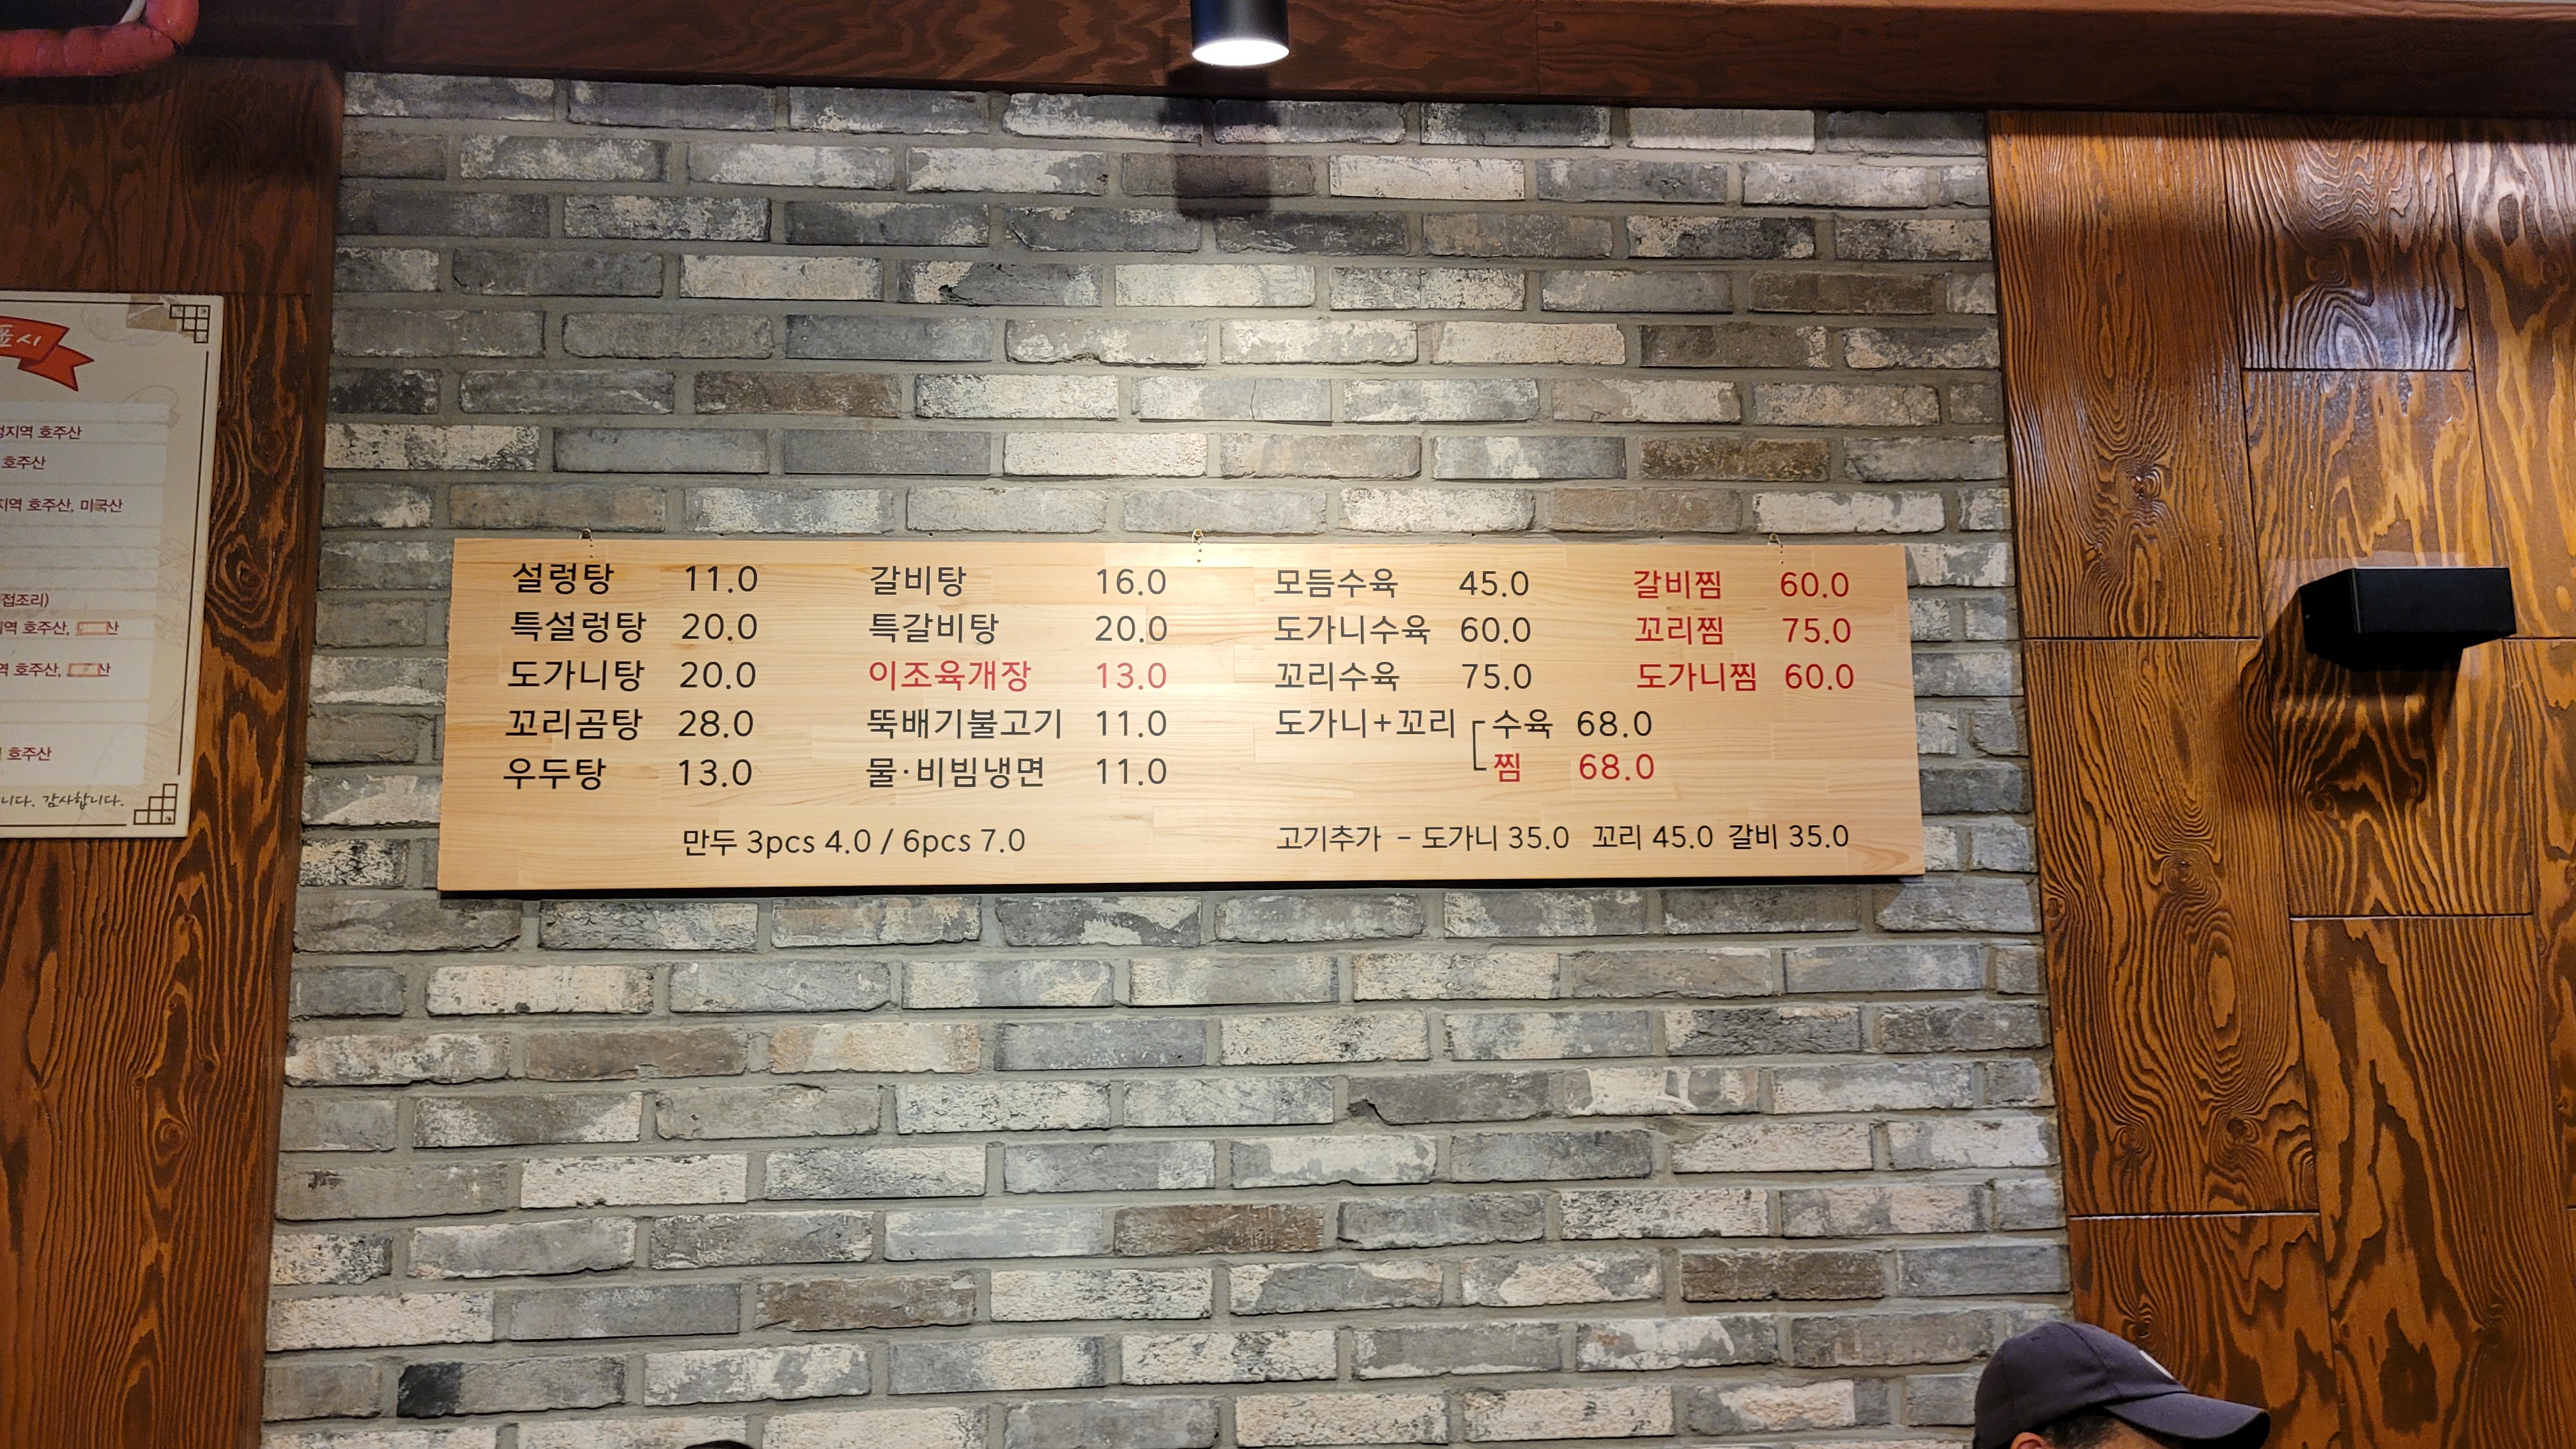 표시
호주산
호주산
호주산, 미국산
호주산,
호주산,
호주산
감사합니다.
설렁탕 11.0
특설렁탕 20.0
도가니탕 20.0
꼬리곰탕 28.0
우두탕 13.0
갈비탕 16.0
특갈비탕 20.0
이조육개장 13.0
뚝배기불고기 11.0
물·비빔냉면 11.0
만두 3pcs 4.0 / 6pcs 7.0
모듬수육 45.0
도가니수육 60.0
꼬리수육 75.0
갈비찜 60.0
꼬리찜 75.0
도가니찜 60.0
도가니+꼬리 수육 68.0
찜 68.0
고기추가 - 도가니 35.0 꼬리 45.0 갈비 35.0